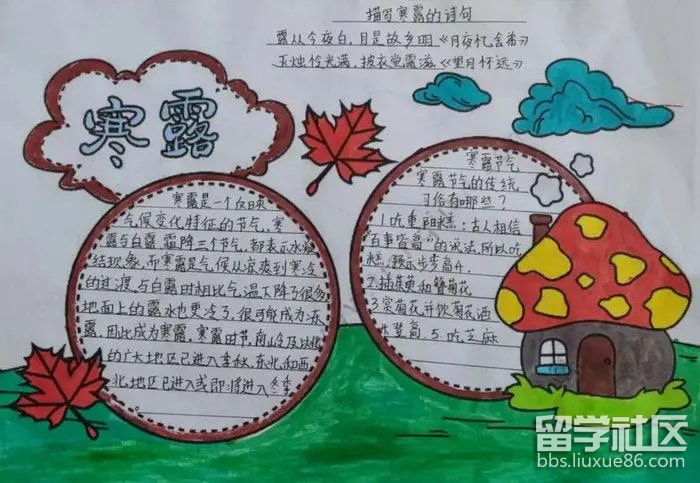 描写寒露的诗句
露从今夜白,月是故乡明《月夜忆舍弟》
灭烛怜光满,披衣觉露滋《望月怀远》
寒露
寒露是一个反映
气候变化特征的节气,寒
露与白露、霜降三个节气,都表示水凝
结现象,而寒露是气候从凉爽到寒冷
的过渡,与白露时相比气温下降了很多
地面上的露水也更冷了,很可能成为冻
露,因此成为寒露,寒露时节,南岭及以北
的广大地区已进入季秋,东北和西
北地区已进入或即将进入冬季
寒露节气
寒露节气的传统
习俗有哪些?
1.吃重阳糕:古人相信
"百事皆高"的说法,所以吃
糕,预示步步高升。
2.插茱萸和簪菊花
3.赏菊花并饮菊花酒
4.登高 5.吃芝麻
留学社区
bbs.liuxue86.com